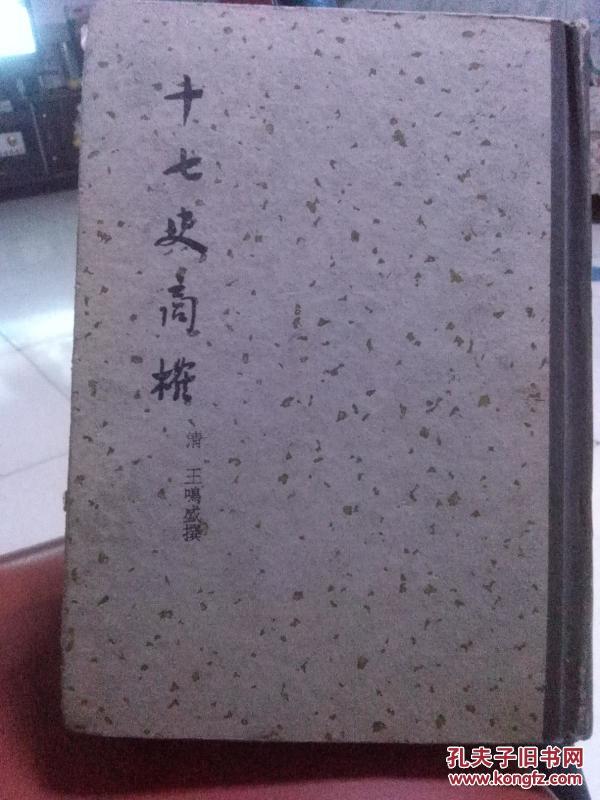 十七史商榷
清 王鳴盛撰
孔夫子旧书网
www.kongfz.com